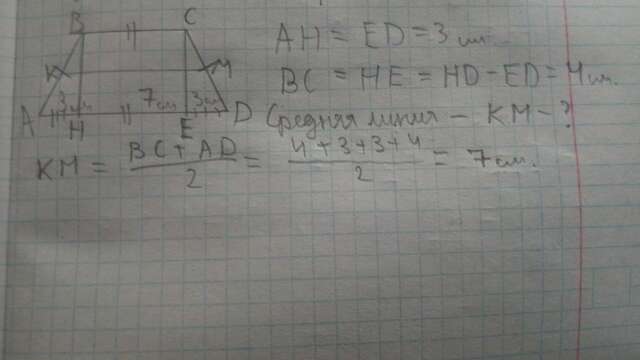 B C
AH = ED = 3 см.
K M
BC = HE = HD - ED = 4 см.
3 см 7 см 3 см
A H E D
Средняя линия - KM - ?
KM = BC + AD / 2 = 4 + 3 + 3 + 4 / 2 = 7 см.